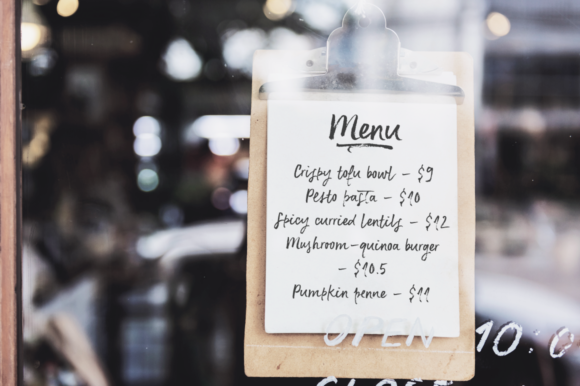 Menu
Crispy tofu bowl – $9
Pesto pasta – $10
Spicy curried lentils – $12
Mushroom-quinoa burger
– $10.5
Pumpkin penne – $11
OPEN 10:0
CLOSE